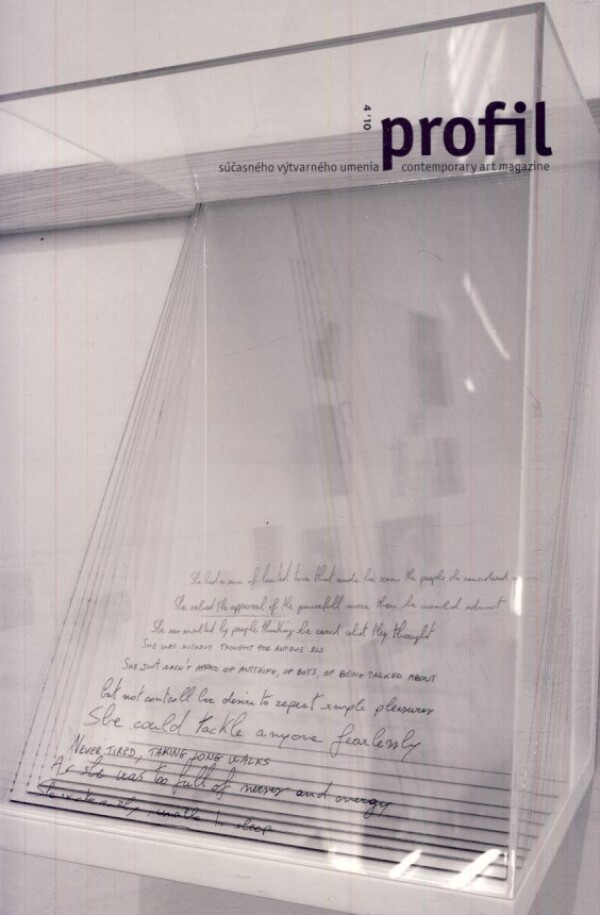 4 '10
profil
súčasného výtvarného umenia contemporary art magazine
She had sense of limited time that made her scan the people she considered
She valued the approval of the powerfull more than he would admit
She was insulted by people thinking he cared what they thought
SHE WAS WITHOUT THOUGHT FOR ANYONE ELS
SHE JUST WASN'T AFRAID OF ANYTHING, OF BOYS, OF BEING TALKED ABOUT
but not controll her desire to repeat simple pleasures
She could tackle anyone fearlessly
NEVER TIRED, TAKING LONG WALKS
As she was too full of nerves and energy
unable to sleep